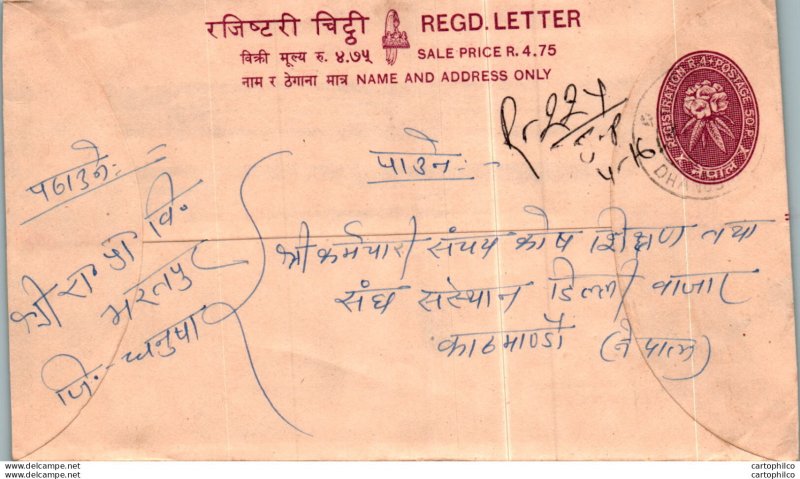 रजिष्टरी चिट्ठी REGD. LETTER
विक्री मूल्य रु. ४.७५ SALE PRICE R. 4.75
नाम र ठेगाना मात्र NAME AND ADDRESS ONLY
REGISTRATION R.4+POSTAGE 50 P.
R-224
पठाउने:-
श्री रा प्रा वि.
भरतपुर
जि:- धनुषा
पाउने:-
श्री कर्मचारी संचय कोष शिक्षण तथा
संघ संस्थान डिल्ली बाजार
काठमाण्डौ (नेपाल)
cartophilco
cartophilco
cartophilco
cartophilco
cartophilco
cartophilco